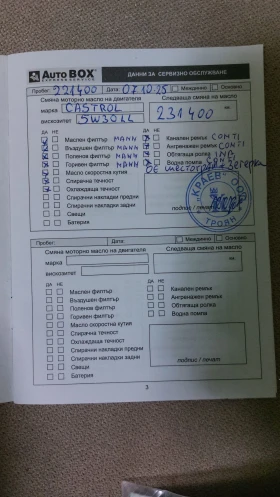 AUTO BOX
ДАННИ ЗА СЕРВИЗНО ОБСЛУЖВАНЕ
Пробег: 221400 Дата: 07.10.25 Междинно Основно
Смяна моторно масло на двигателя Следваща смяна на масло
марка CASTROL
вискозитет 5W30LL
231400 км.
ДА НЕ ДА НЕ
Маслен филтър MANN Канален ремък CONTI
Въздушен филтър MANN Ангренажен ремък CONTI
Поленов филтър MANN Обтягаща ролка INA
Горивен филтър MANN Водна помпа
Масло скоростна кутия
Спирачна течност
Охлаждаща течност
Спирачни накладки предни
Спирачни накладки задни
Свещи
Батерия
подпис / печат
ТРОЯН
Пробег: Дата: Междинно Основно
Смяна моторно масло на двигателя Следваща смяна на масло
марка
вискозитет
км.
ДА НЕ ДА НЕ
Маслен филтър Канален ремък
Въздушен филтър Ангренажен ремък
Поленов филтър Обтягаща ролка
Горивен филтър Водна помпа
Масло скоростна кутия
Спирачна течност
Охлаждаща течност
Спирачни накладки предни
Спирачни накладки задни
Свещи
Батерия
подпис / печат
3